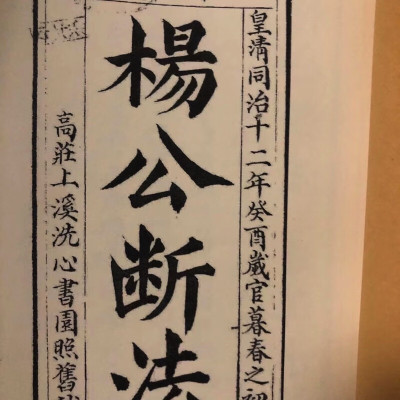 皇清同治十二年癸酉歲官暮春之初
楊公断法
高莊上溪洗心書園照舊